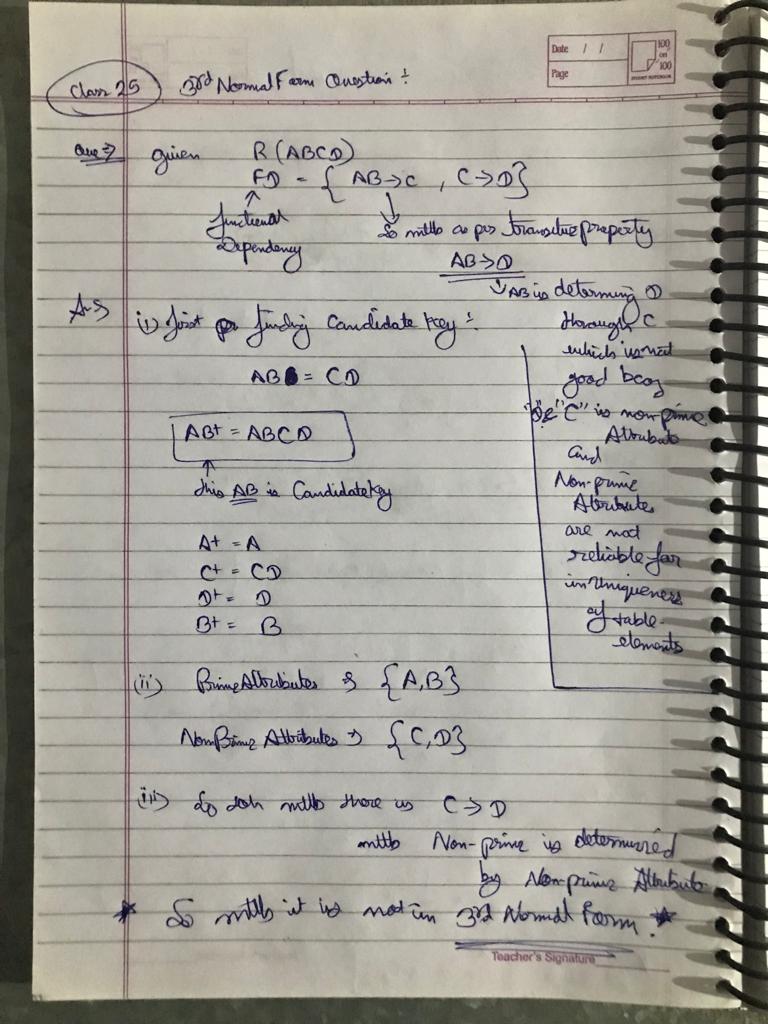 Date / /
Page
100 on 100
STUDENT NOTEBOOK
Class 25
3rd Normal Form Question :
Que ⇒ given R (ABCD)
FD = { AB→C , C→D }
functional Dependency
So mtlb as per transitive property
AB→D
AB is determing D
through C
which is not
good bcoz
"C" is non prime
Attribute
and
Non-prime
Attributes
are not
reliable for
in Uniqueness
of table
elements
Ans
(i) first for finding Candidate Key :
AB = CD
AB+ = ABCD
this AB is Candidate Key
A+ = A
C+ = CD
D+ = D
B+ = B
(ii) Prime Attributes ⇒ {A,B}
Non Prime Attributes ⇒ {C,D}
(iii) So mtlb there is C→D
mtlb Non-prime is determined
by Non-prime Attribute
* So mtlb it is not in 3rd Normal Form. *
Teacher's Signature